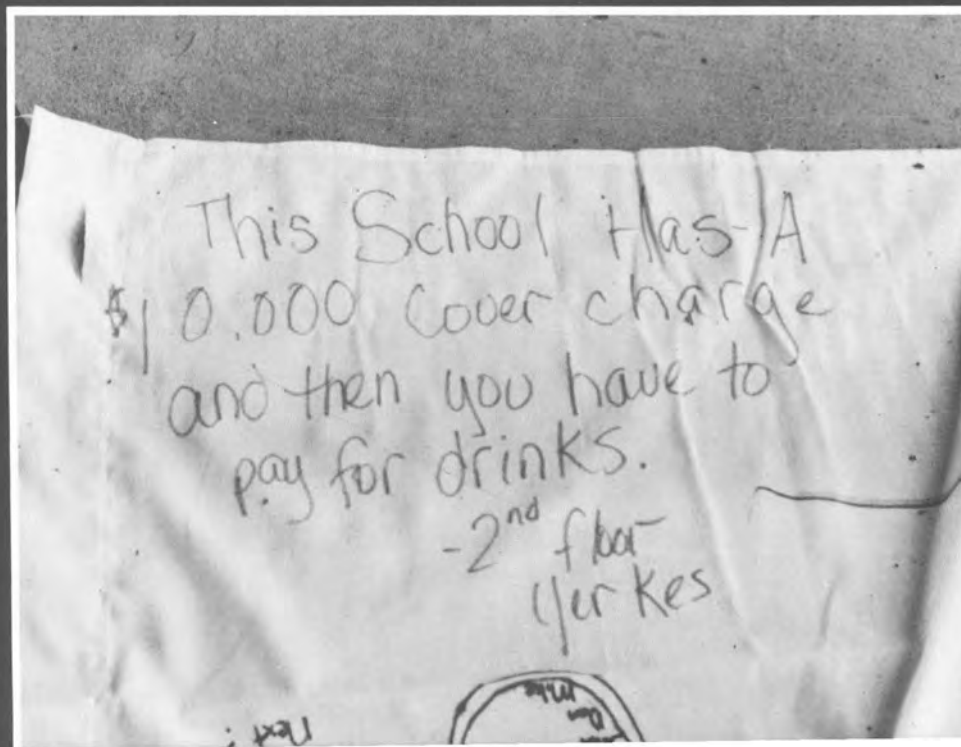 This School Has A
$10.000 Cover charge
and then you have to
pay for drinks.
-2nd floor
Yerkes
Next:
Mike
Dan